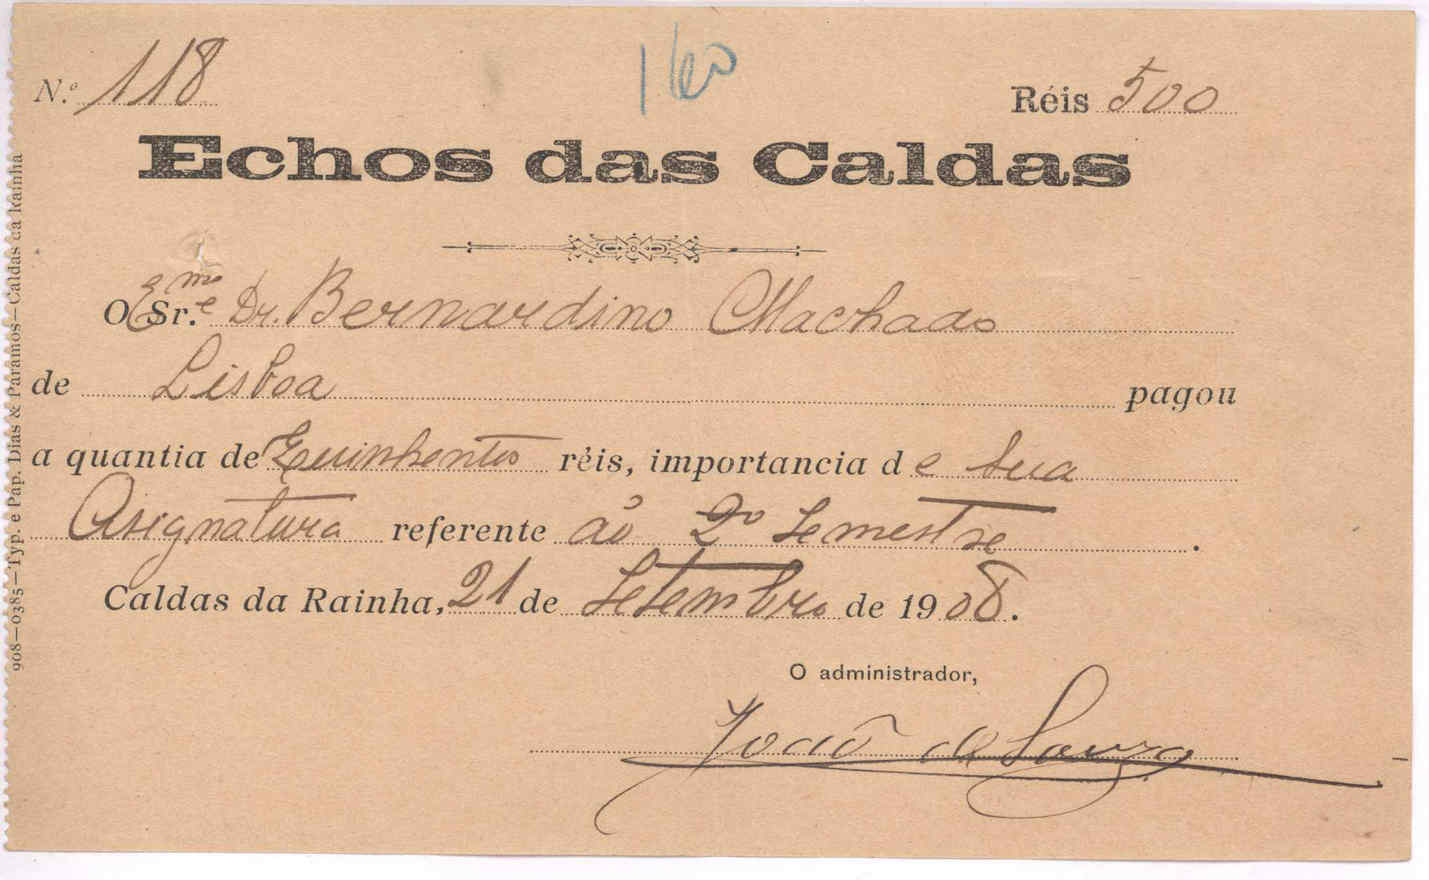 160
N.º 118 Réis 500
Echos das Caldas
O Exmº Sr.e Dr. Bernardino Machado
de Lisboa pagou
a quantia de Quinhentos réis, importancia de sua
Asignatura referente aó 2º Semestre.
Caldas da Rainha, 21 de Setembro de 1908.
O administrador,
João de Souza
908—0385—Typ. e Pap. Dias & Paramos—Caldas da Rainha